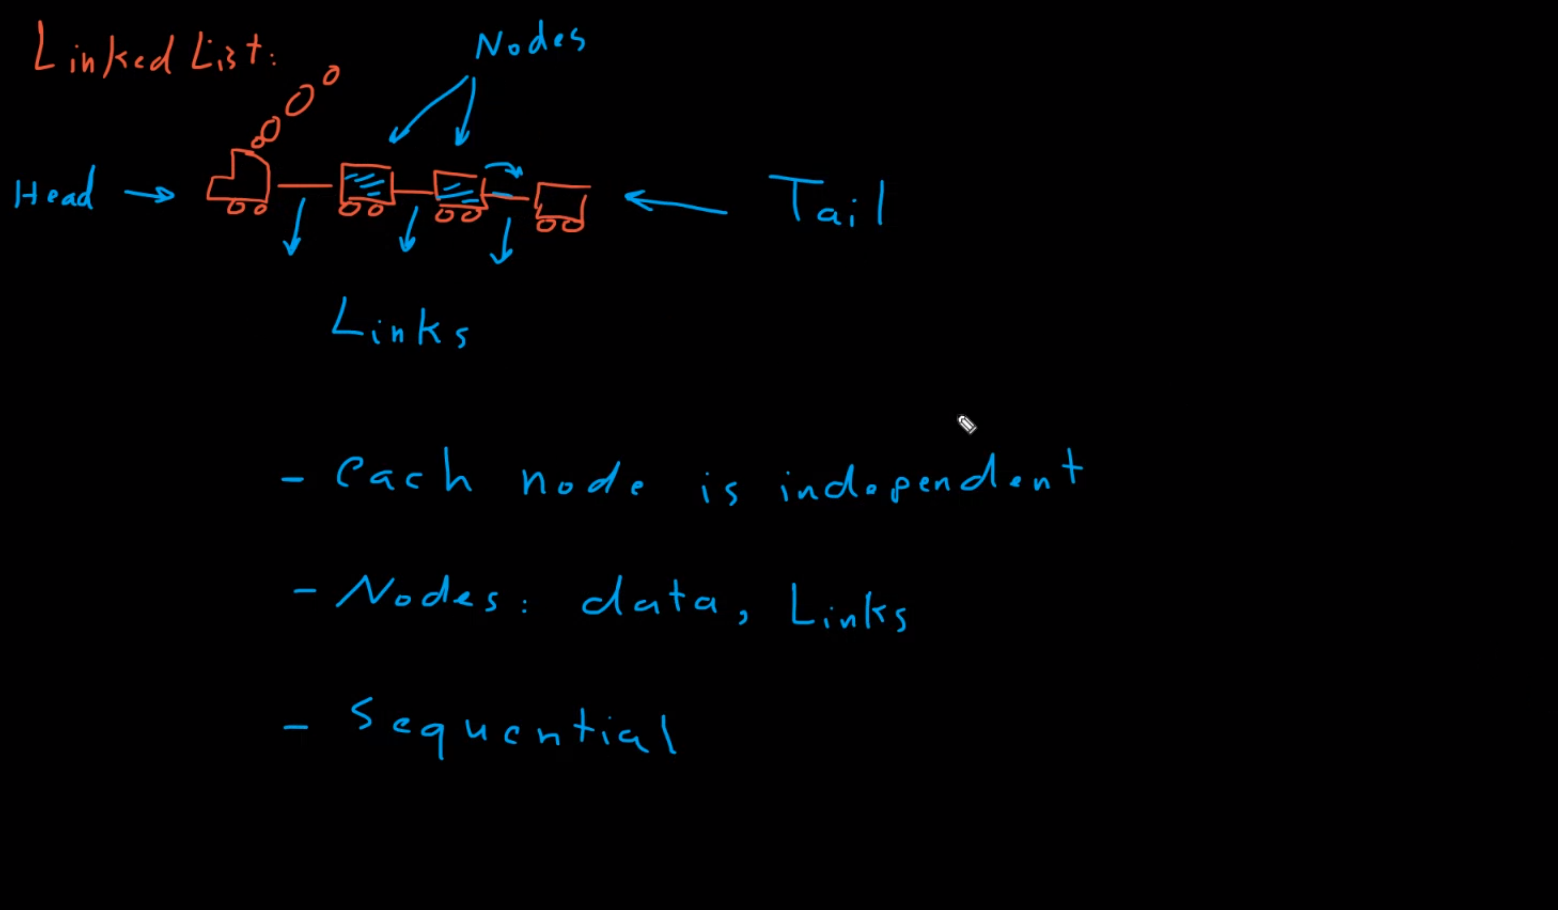 Linked List:
Nodes
Head
Tail
Links
- Each node is independent
- Nodes: data, Links
- Sequential